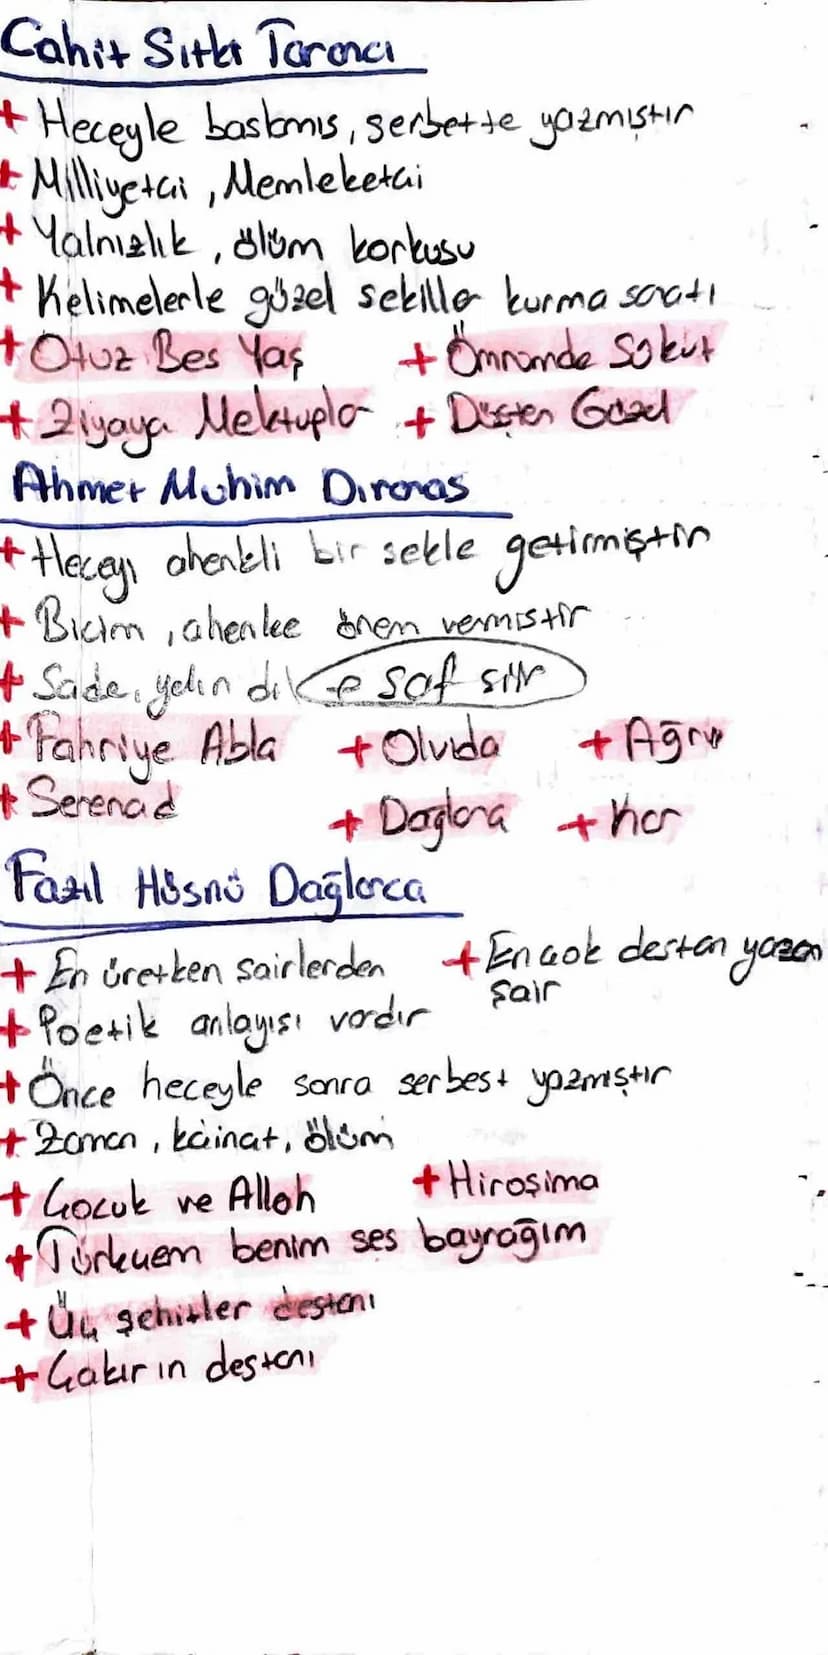 Cahit Sıtkı Tarancı
+ Heceyle baslamıs, serbette yazmıştır
+ Milliyetçi, Memleketçi
+ Yalnızlık, ölüm korkusu
+ Kelimelerle güzel sekiller kurma sanatı
+ Otuz Bes Yaş + Ömrümde Sükut
+ Ziyaya Mektuplar + Düşten Güzel
Ahmet Muhim Dıranas
+ Heceyı ahenkli bir sekle getirmiştir
+ Bicim, ahenke önem vermıstir
+ Sade, yalın dil → saf siir
+ Fahriye Abla + Olvida + Ağrı
+ Serenad + Daglara + Kar
Fazıl Hüsnü Dağlarca
+ En üretken sairlerden + En çok destan yazan
şair
+ Poetik anlayısı vardır
+ Önce heceyle sonra serbest yazmıştır
+ Zaman, kainat, ölüm
+ Çocuk ve Allah + Hiroşima
+ Türkçem benim ses bayrağım
+ Üç şehitler destanı
+ Çakır ın destanı